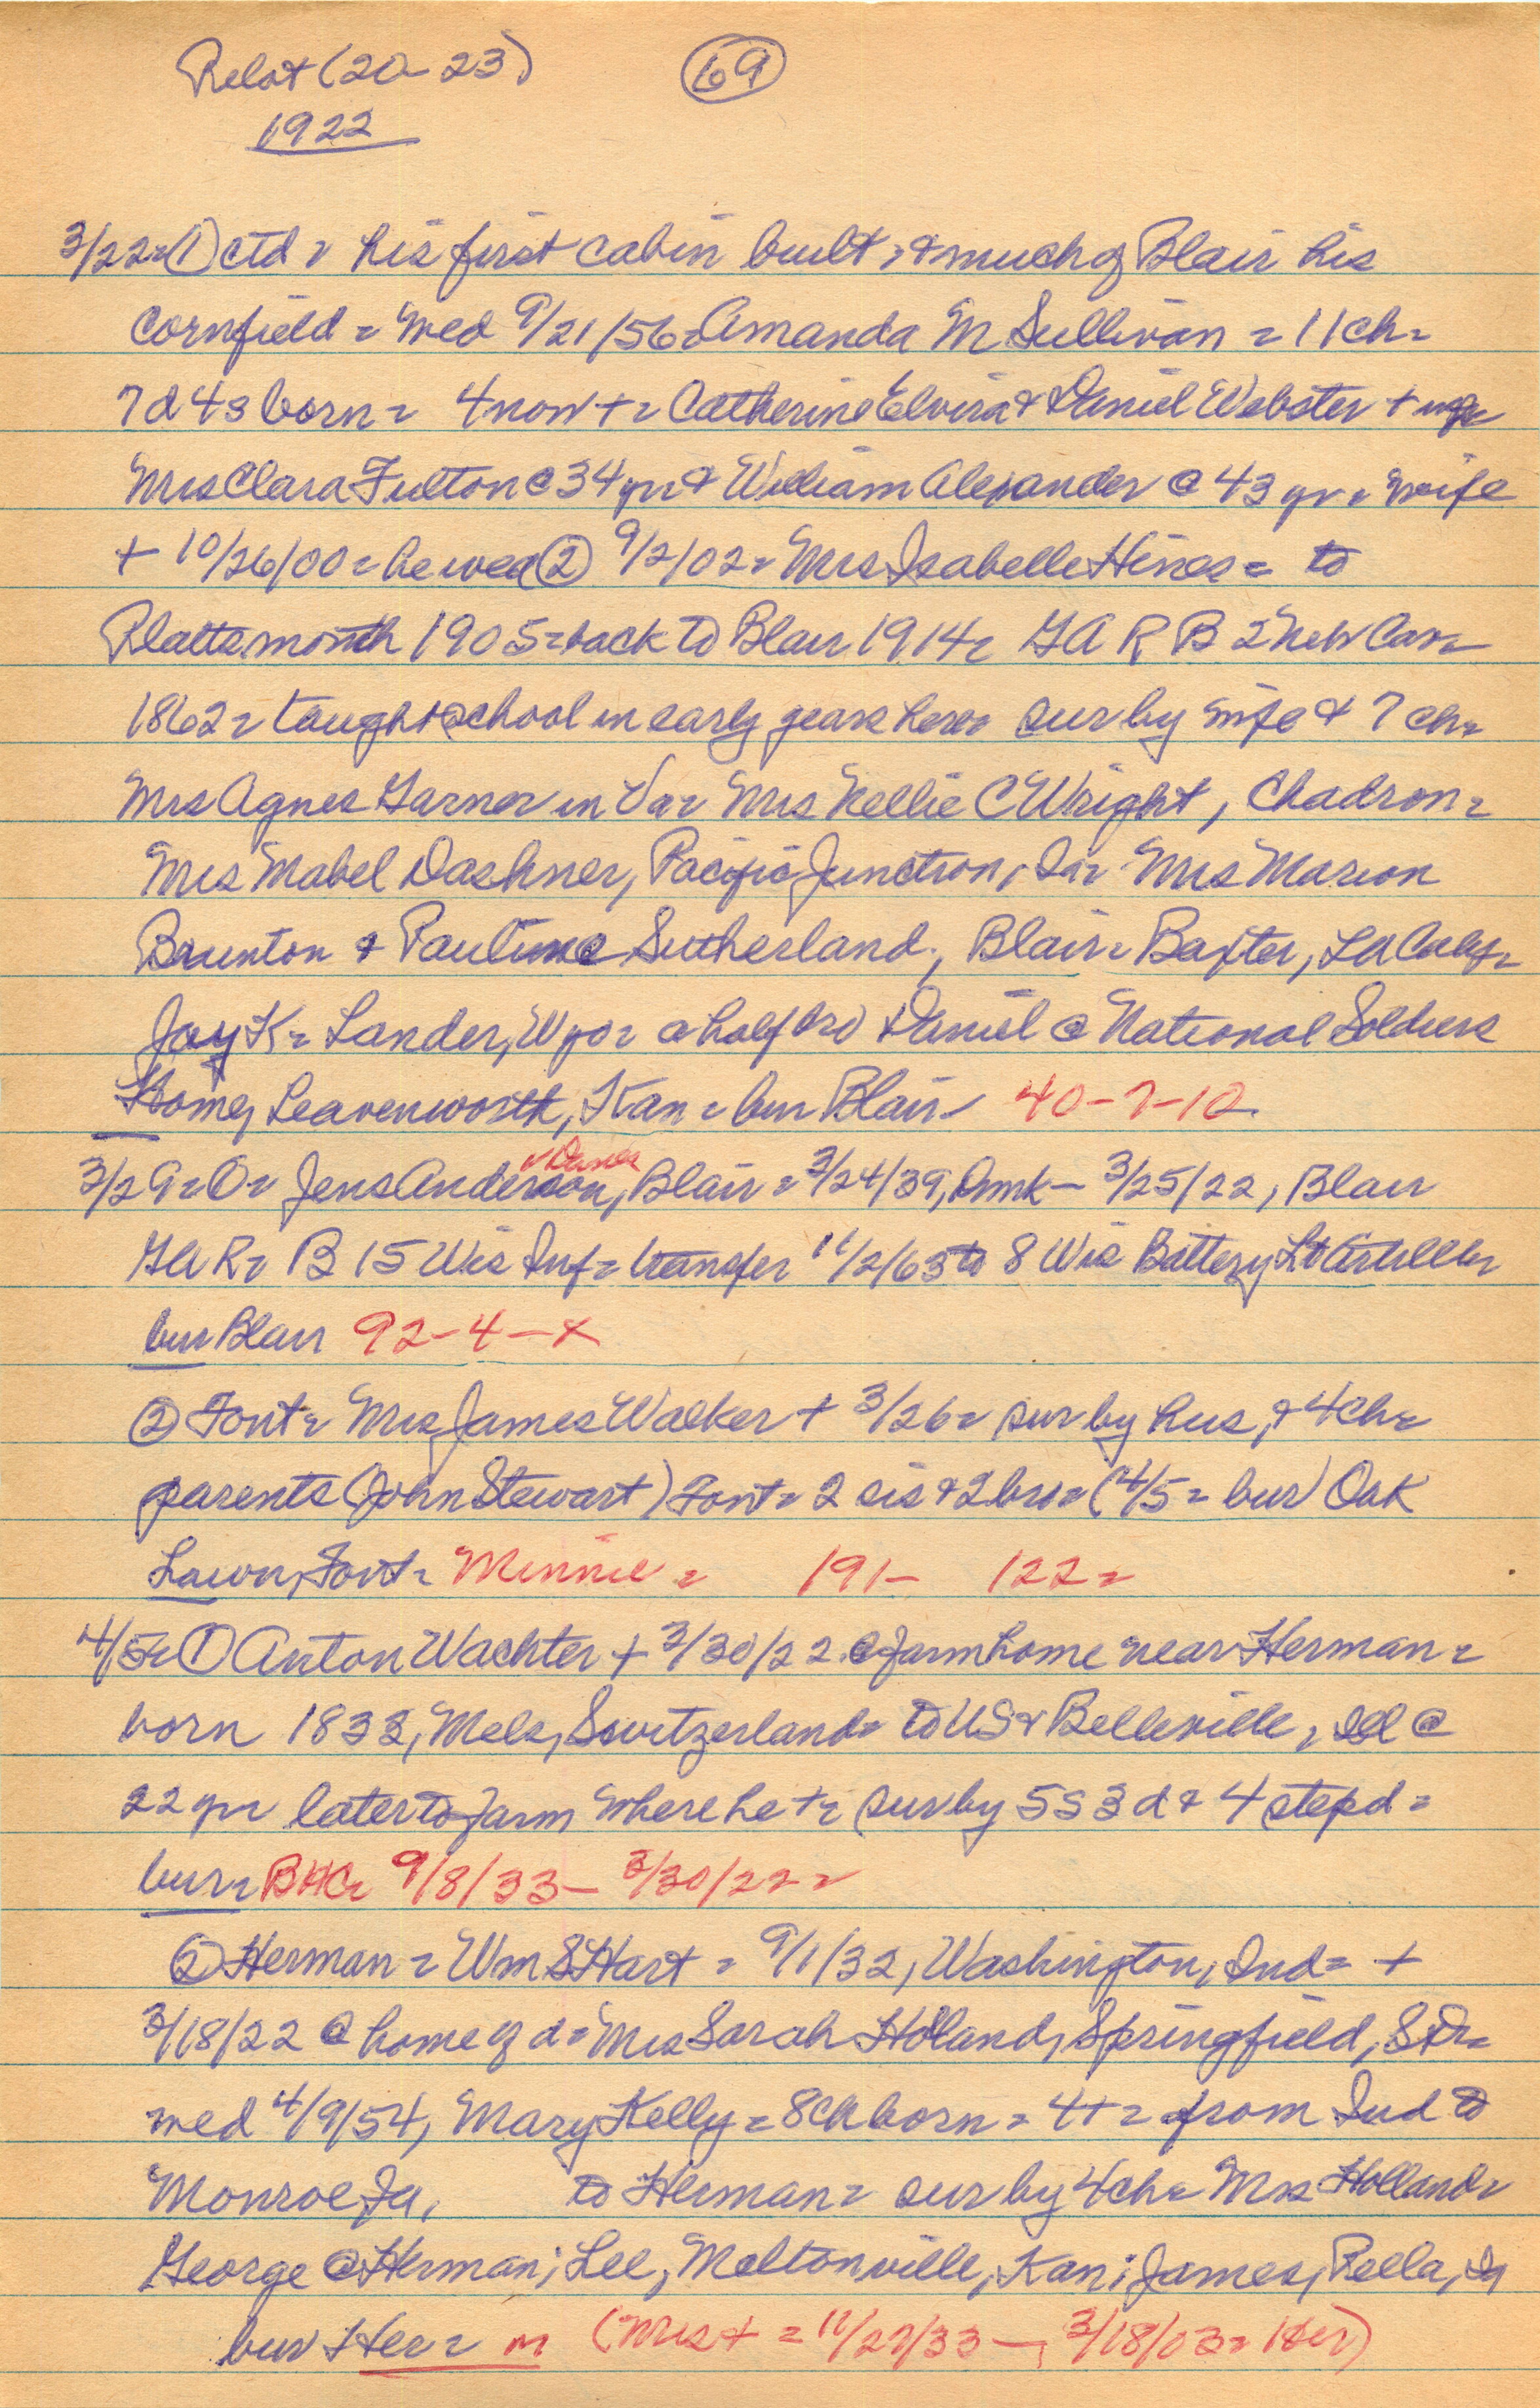 Pilot (20-23) 69
1922
3/22 = ① ctd = his first cabin built, & much of Blair his
cornfield = wed 9/21/56 = Amanda M Sullivan = 11 ch =
7d 4s born = 4 now + = Catherine Elvira & Daniel Webster +
Mrs Clara Fulton @ 34 yr = & William Alexander @ 43 yr = wife
+ 10/26/00 = he wed ② 9/2/02 = Mrs Isabelle Hines = to
Plattsmouth 1905 = back to Blair 1914 = G A R B 2 Neb Cav =
1862 = taught school in early years here = sur by wife & 7 ch =
Mrs Agnes Garner in Va = Mrs Nellie C Wright, Chadron =
Mrs Mabel Dashner, Pacific Junction, Ia = Mrs Marion
Brunton & Pauline Sutherland, Blair = Baxter, LA Calif =
Jay K = Lander, Wyo = a half bro Daniel @ National Soldiers
Home, Leavenworth, Kan = bur Blair 40-7-10
3/29 = O = Jens Anderson, Blair = 3/24/39, Dmk - 3/25/22, Blair
GAR = B 15 Wis Inf = transfer 11/2/63 to 8 Wis Battery Lt Artiller
bur Blair 92-4-X
② Font = Mrs James Walker + 3/26 = sur by hus, & 4 ch =
parents (John Stewart) Font = 2 sis & 2 bro = (4/5 = bur Oak
Lawn, Font = Minnie = 191- 122 =
4/5 = ① Anton Wachter + 3/30/22 @ farm home near Herman =
born 1833, Mels, Switzerland = to US & Belleville, Ill @
22 yr = later to farm where he + = sur by 5s 3d & 4 stepd =
bur = BHC = 9/8/33 - 3/30/22 =
② Herman = Wm S Hart = 9/1/32, Washington, Ind = +
3/18/22 @ home of d = Mrs Sarah Holland, Springfield, SD =
wed 4/9/54, Mary Kelly = 8 ch born = 4+ = from Ind to
Monroe Ia, to Herman = sur by 4 ch = Mrs Holland =
George @ Herman; Lee, Meltonville, Kan; James, Pella, Ia
bur Her = m (Mrs + = 11/27/33 - 3/18/03 = Her)